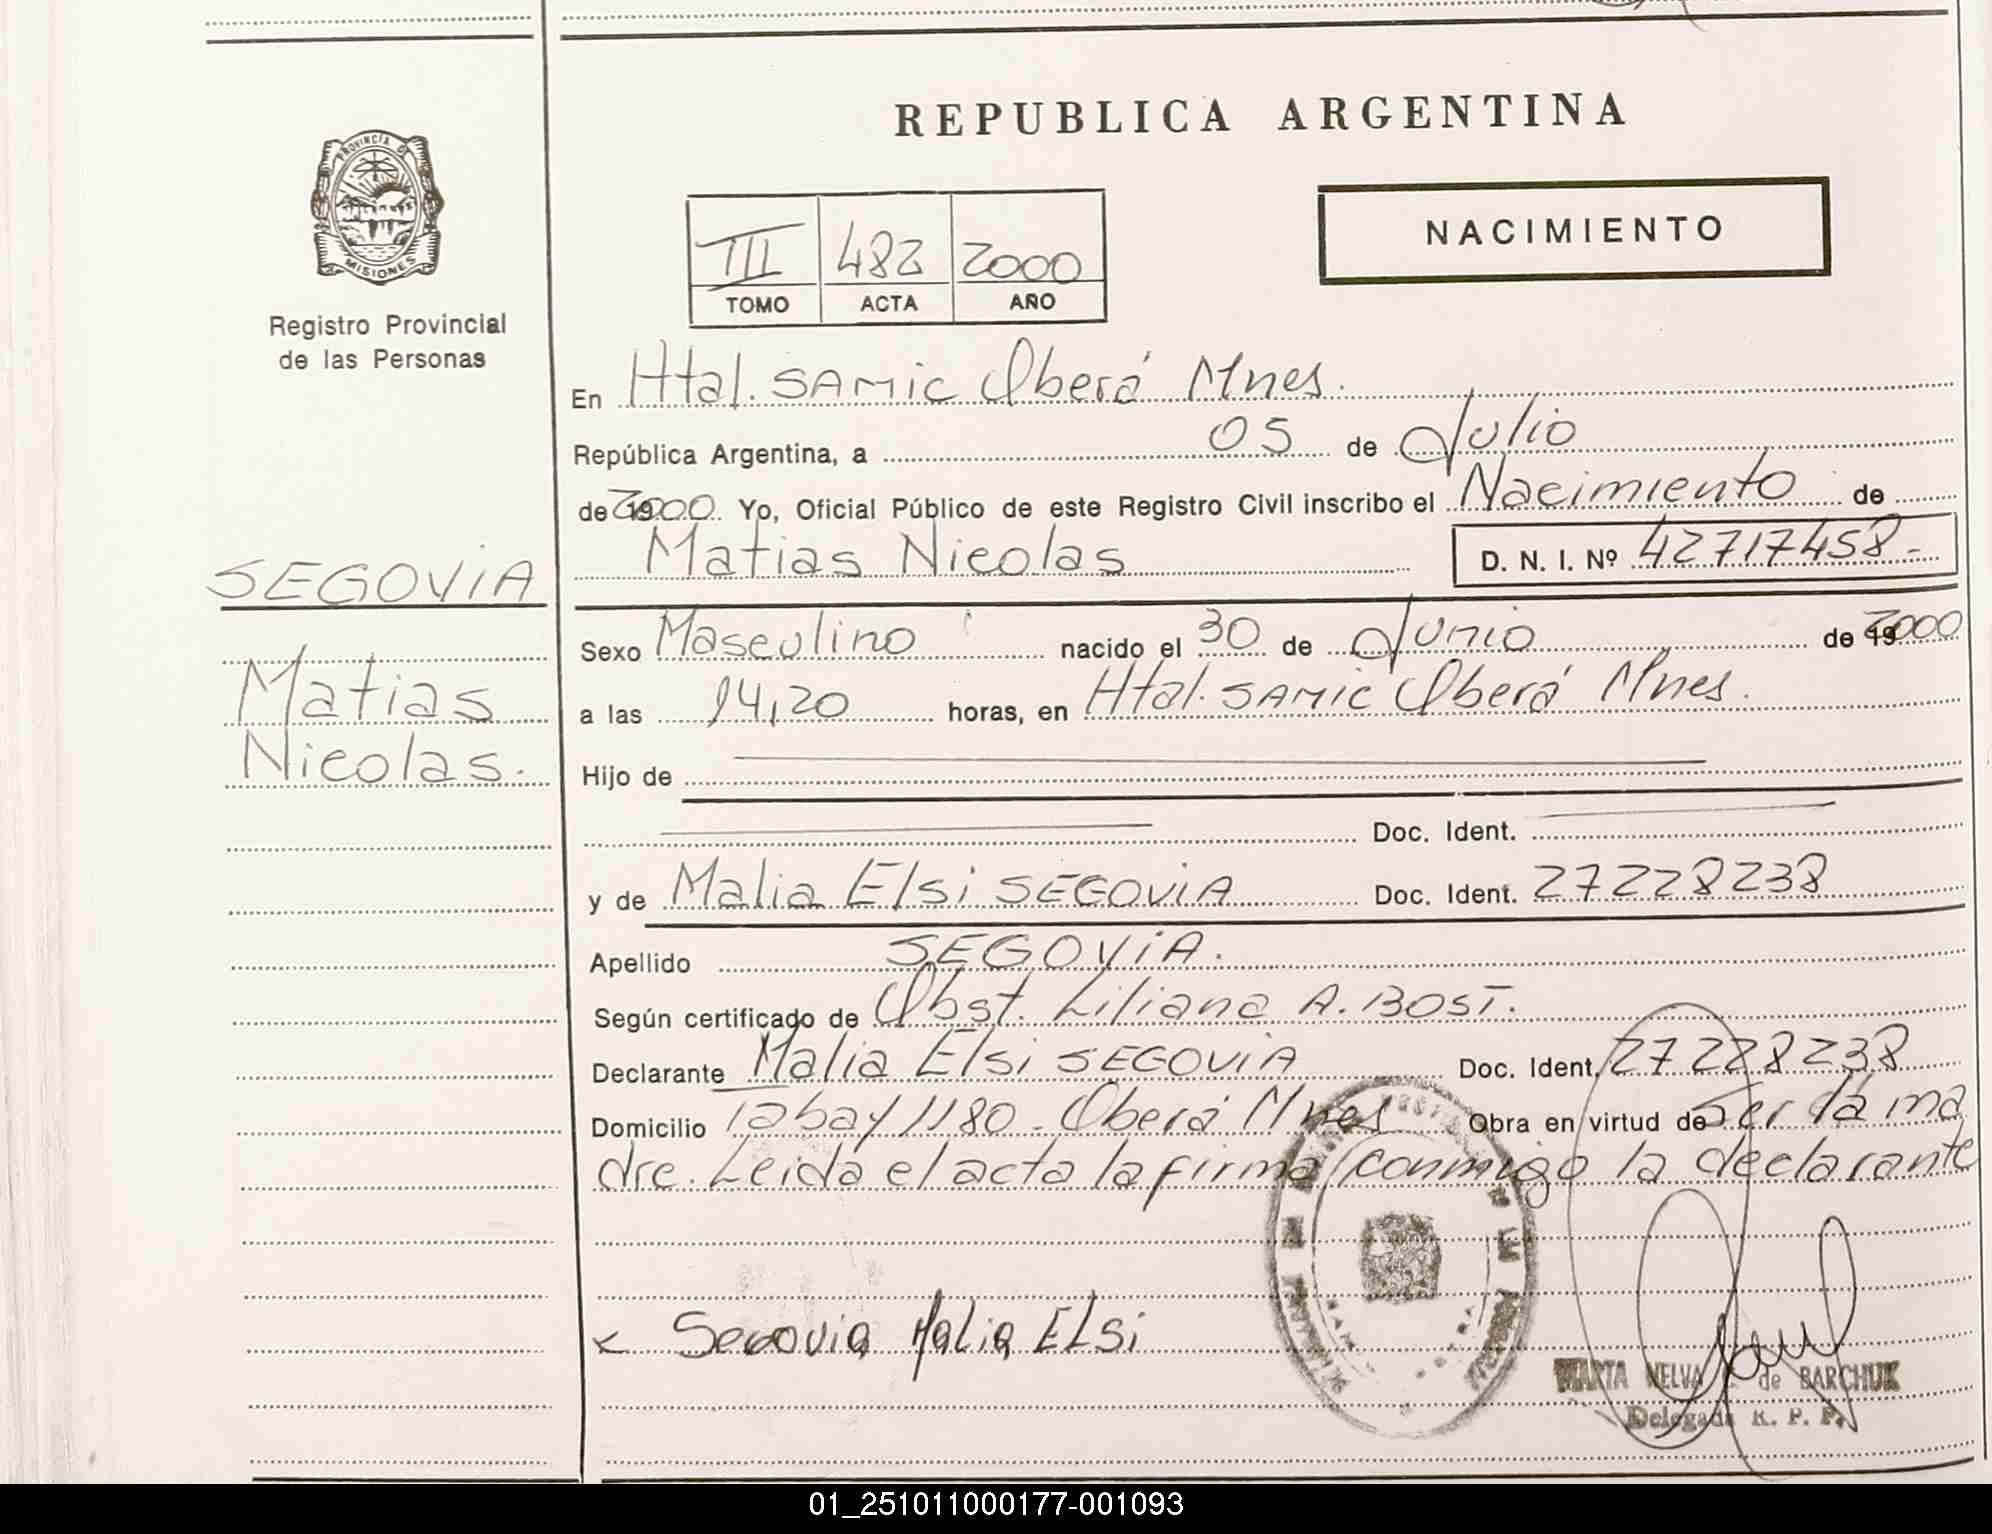 REPUBLICA ARGENTINA
PROVINCIA DE
MISIONES
Registro Provincial
de las Personas
NACIMIENTO
III 482 2000
TOMO ACTA AÑO
En Htal. SAMIC Oberá Mnes.
República Argentina, a 05 de Julio
de 2000 Yo, Oficial Público de este Registro Civil inscribo el Nacimiento de
Matias Nicolas D. N. I. Nº 42717458-
SEGOVIA
Matias
Nicolas.
Sexo Masculino nacido el 30 de Junio de 2000
a las 14,20 horas, en Htal. SAMIC Oberá Mnes.
Hijo de
Doc. Ident.
y de Malia Elsi SEGOVIA Doc. Ident. 27228238
Apellido SEGOVIA.
Según certificado de Obst. Liliana A. BOST.
Declarante Malia Elsi SEGOVIA Doc. Ident. 27228238
Domicilio Tabay 1180 - Oberá Mnes Obra en virtud de Ser la ma
dre. Leida el acta la firma conmigo la declarante
Segovia Malia ELSi
MARTA NELVA de BARCHUK
Delegada R. P. P.
01_251011000177-001093